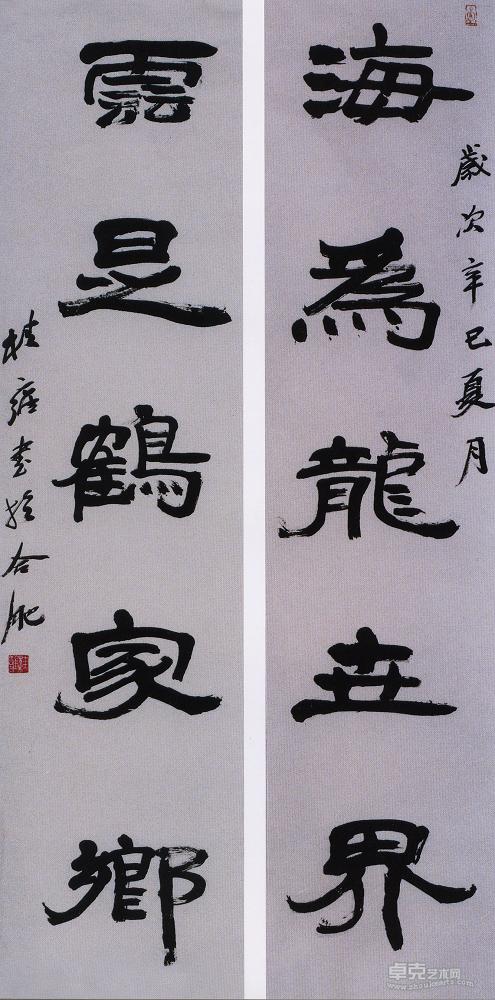 海為龍世界
歲次辛巳夏月
雲是鶴家鄉
桂雍書於合肥
卓克艺术网
www.zhuokearts.com